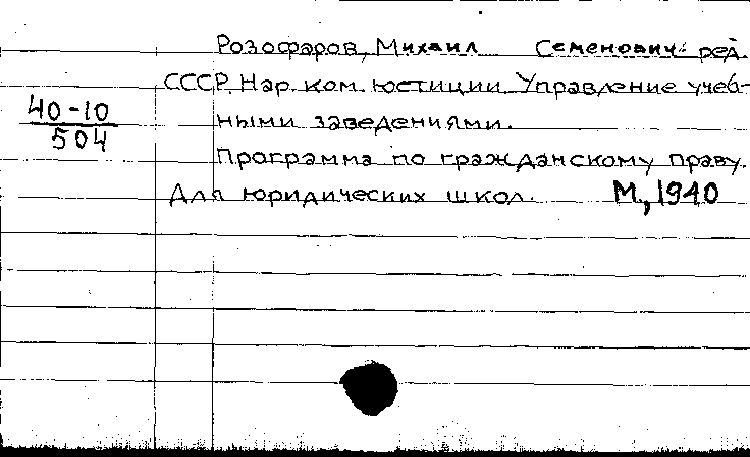 Розофаров, Михаил Семенович ред.
СССР. Нар. ком. юстиции. Управление учеб-
40-10
504
ными заведениями.
Программа по гражданскому праву.
Для юридических школ. М., 1940